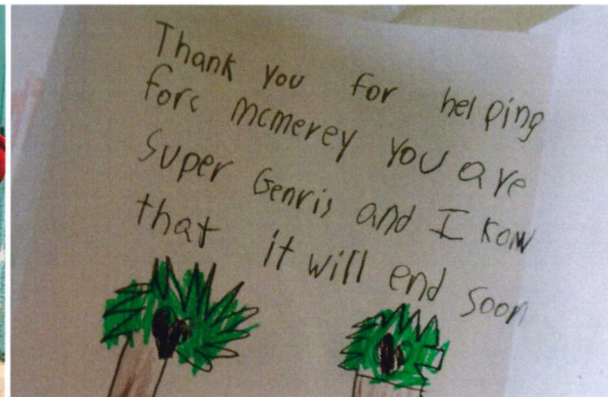 Thank you for helping
forc mcmerey you are
super Genris and I kow
that it will end soon